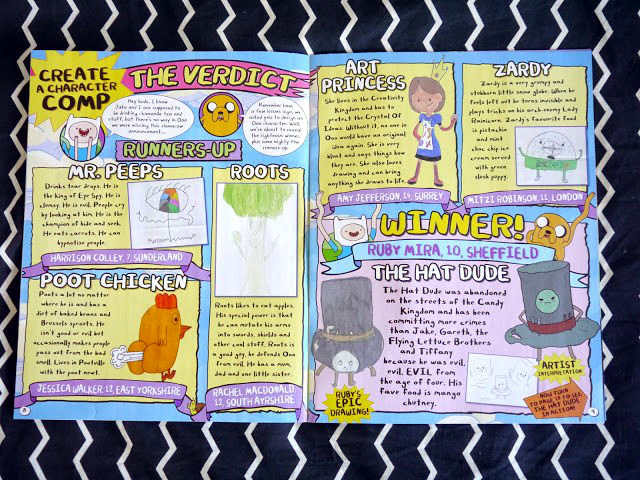 CREATE
A CHARACTER
COMP
THE VERDICT
Hey dude, I know
Jake and I are supposed to
be drinking chamomile tea and
stuff, but there's no way in Ooo
we were missing this slamacow
announcement...
Remember how,
a few issues ago, we
asked you to design an
Ooo character? Well,
we're about to reveal
the righteous winner,
plus some mighty fine
runners-up.
RUNNERS-UP
MR. PEEPS
Drinks tear drops. He is
the king of Eye Spy. He is
clumsy. He is evil. People cry
by looking at him. He is the
champion of hide and seek.
He eats carrots. He can
hypnotise people.
HARRISON COLLEY, 7, SUNDERLAND
POOT CHICKEN
Poots a lot no matter
where he is and has a
diet of baked beans and
Brussels sprouts. He
isn't good or evil but
occasionally makes people
pass out from the bad
smell. Lives in Pootville
with the poot newt.
JESSICA WALKER, 12, EAST YORKSHIRE
ROOTS
Roots likes to eat apples.
His special power is that
he can mutate his arms
into swords, shields and
other cool stuff. Roots is
a good guy, he defends Ooo
from evil. He has a mum,
dad and one little sister.
RACHEL MACDONALD,
12, SOUTH AYRSHIRE
8
ART
PRINCESS
She lives in the Creativity
Kingdom and has to
protect the Crystal Of
Ideas. Without it, no one in
Ooo would have an original
idea again. She is very
blunt and says things how
they are. She also loves
drawing and can bring
anything she draws to life.
AMY JEFFERSON, 14, SURREY
ZARDY
Zardy is a very grumpy and
stubborn little snow globe. When he
feels left out he turns invisible and
plays tricks on his arch-enemy Lady
Rainicorn. Zardy's favourite food
is pistachio
and mint
choc chip ice
cream served
with green
slush puppy.
MITZI ROBINSON, 11, LONDON
WINNER!
RUBY MIRA, 10, SHEFFIELD
THE HAT DUDE
The Hat Dude was abandoned
on the streets of the Candy
Kingdom and has been
committing more crimes
than Jake, Gareth, the
Flying Lettuce Brothers
and Tiffany
because he was evil,
evil, EVIL from
the age of four. His
fave food is mango
chutney.
RUBY'S
EPIC
DRAWING!
ARTIST
INTERPRETATION
NOW TURN
TO PAGE 12 TO SEE
THE HAT DUDE
IN ACTION!
9